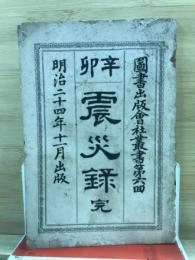 圖書出版會社叢書第六回
辛卯
震災録 完
明治二十四年十二月出版